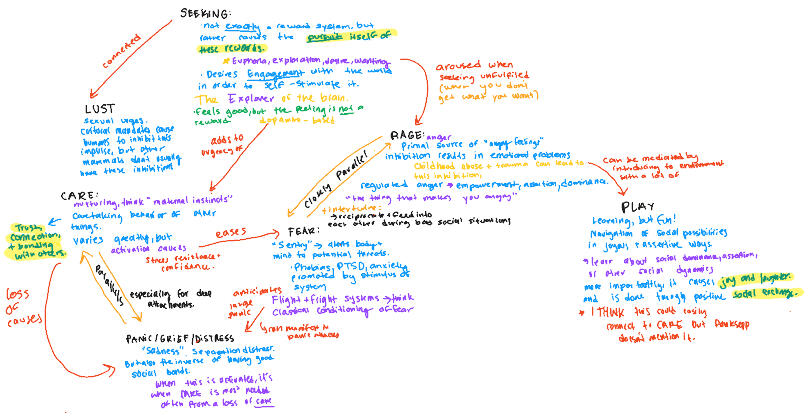 SEEKING:
· not exactly a reward system, but
rather causes the pursuit itself of
these rewards.
* Euphoria, exploration, desire, wanting
· Desires Engagement with the world
in order to self-stimulate it.
The Explorer of the brain.
· Feels good, but the feeling is not a
reward
dopamine-based
connected
LUST
sexual urges.
Cultural mandates cause
humans to inhibit this
impulse, but other
mammals don't usually
have these inhibitions
adds to
urgency of
aroused when
seeking unfulfilled
(when you don't
get what you want)
RAGE: anger
Primal source of "angry feelings"
inhibition results in emotional problems
Childhood abuse + trauma can lead to
this inhibition.
regulated anger → empowerment, assertion, dominance.
"the thing that makes you angry"
Closely Parallel
+ intertwine:
→ reciprocate + feed into
each other during bad social situations
can be mediated by
introducing to environment
with a lot of
PLAY
Learning, but fun!
Navigation of social possibilities
in joyful + assertive ways.
→ learn about social dominance, assertion,
or other social dynamics
more importantly, it causes joy and laughter.
and is done through positive social exchange.
* I THINK this could easily
connect to CARE but Panksepp
doesn't mention it.
CARE:
nurturing, think "maternal instincts"
Caretaking behavior of other
things.
varies greatly, but
activation causes
stress resistance +
confidence.
Trust,
connection,
+ bonding
with others.
eases
FEAR:
"Sentry" → alerts body +
mind to potential threats.
· Phobias, PTSD, anxiety
prompted by stimulus of
system
Flight + Fright systems → think
Classical conditioning of fear
can manifest
panic attacks
anticipates
panic
Parallels
especially for deep
attachments.
loss
of
causes
PANIC/GRIEF/DISTRESS
"Sadness" Separation distress.
But also the inverse of having good
social bonds.
When this is activated, it's
when CARE is most needed
often from a loss of care